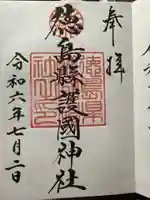 奉拝
徳島縣護國神社
令和六年七月二日